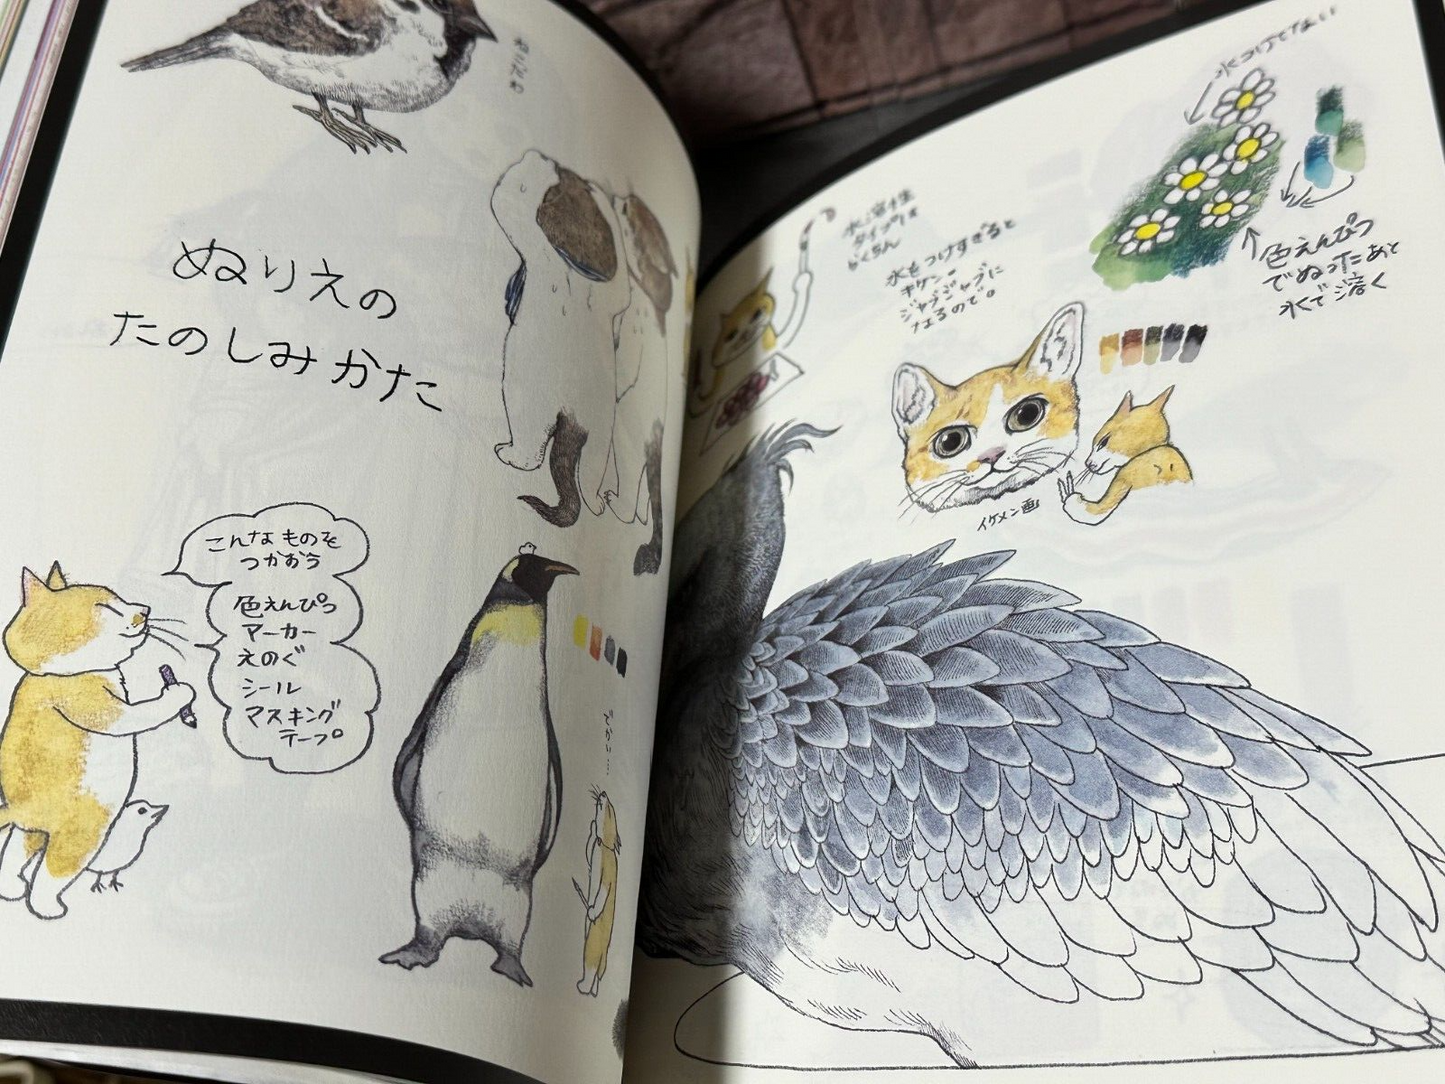 ぬりえの
たのしみかた
こんなものを
つかおう
色えんぴつ
マーカー
えのぐ
シール
マスキング
テープ
でかい…
水溶性
タイプは
らくちん
水をつけすぎると
キケン。
ジャブジャブに
なるので。
水つけてない
色えんぴつ
でぬったあと
水で溶く
イケメン画